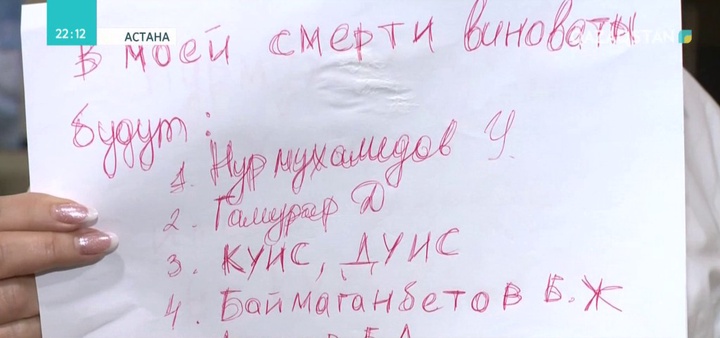 22:12 АСТАНА
QAZAQSTAN
В моей смерти виноваты
будут:
1. Нурмухамедов У.
2. Гамургар Д
3. КУИС, ДУИС
4. Баймаганбетов Б.Ж